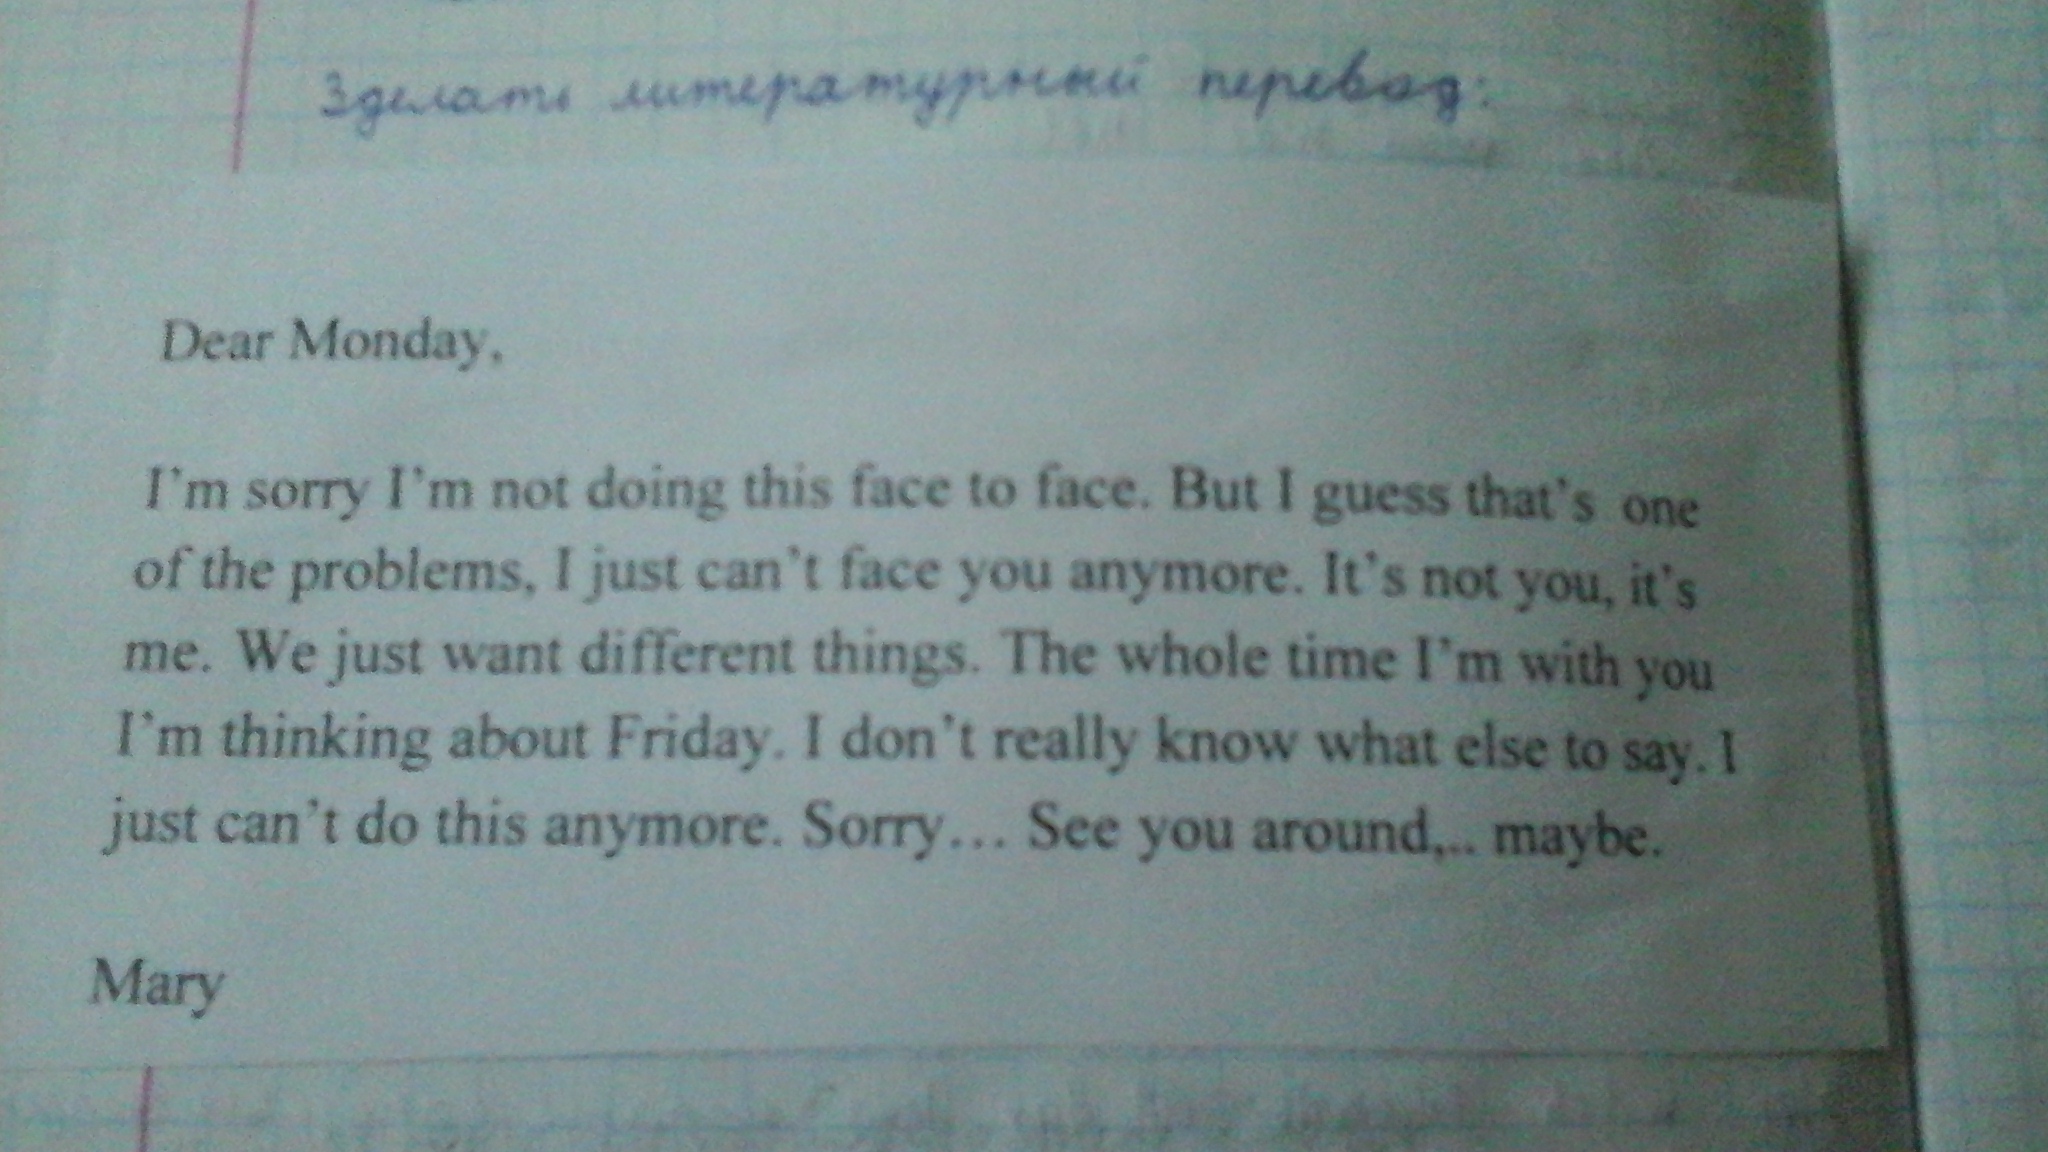 Зделать литературный перевод:
Dear Monday,
I'm sorry I'm not doing this face to face. But I guess that's one
of the problems, I just can't face you anymore. It's not you, it's
me. We just want different things. The whole time I'm with you
I'm thinking about Friday. I don't really know what else to say. I
just can't do this anymore. Sorry… See you around,.. maybe.
Mary